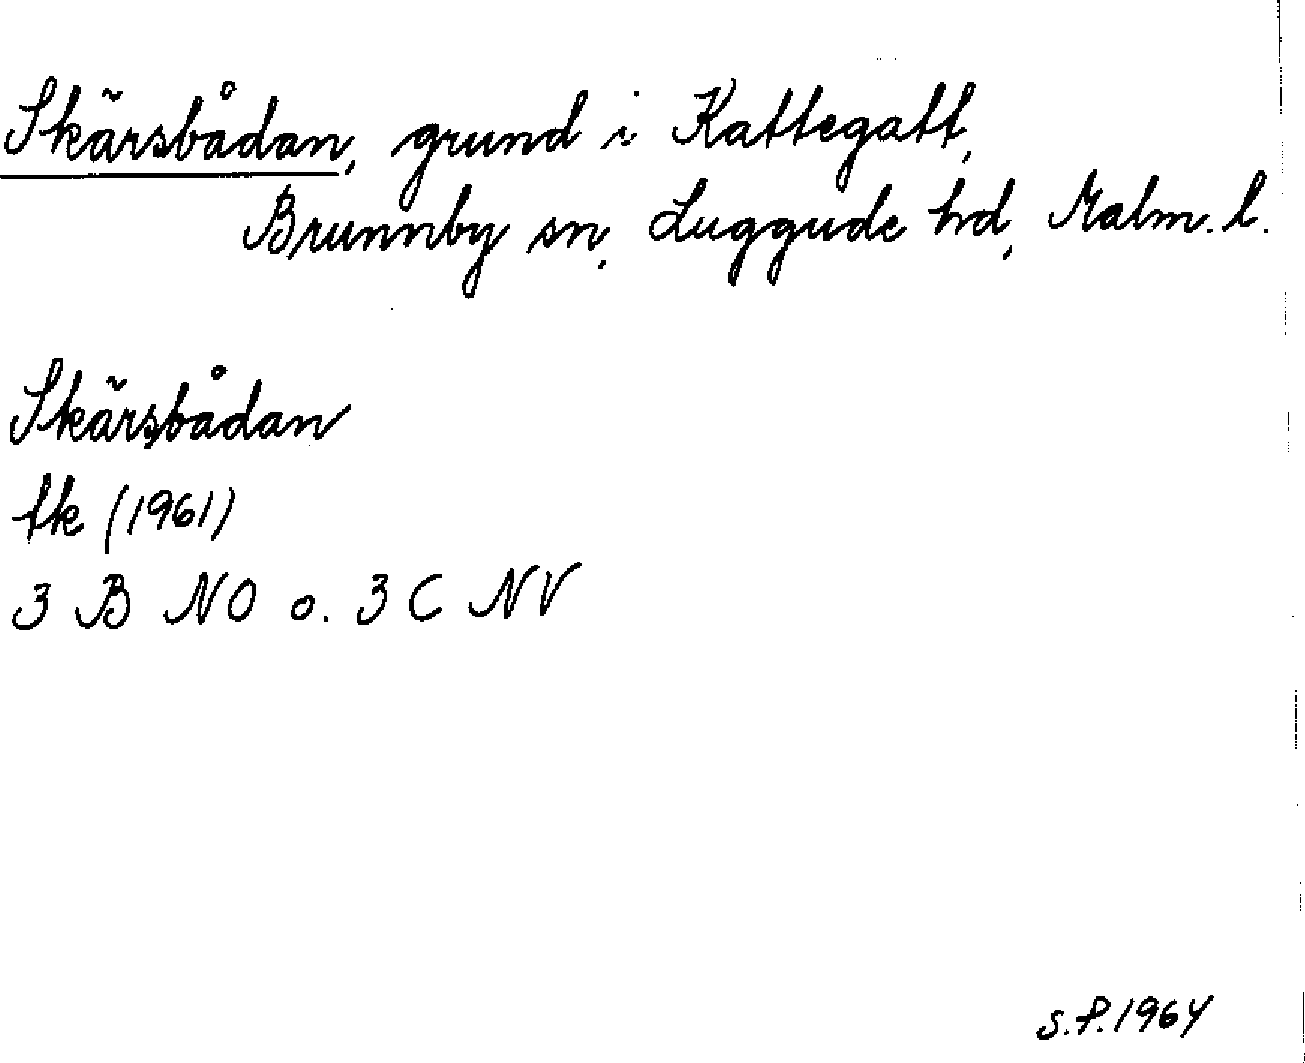 Skärsbådan, grund i Kattegatt,
Brunnby sn, Luggude hd, Malm. l.
Skärsbådan
tk (1961)
3 B NO o. 3 C NV
S.P. 1964